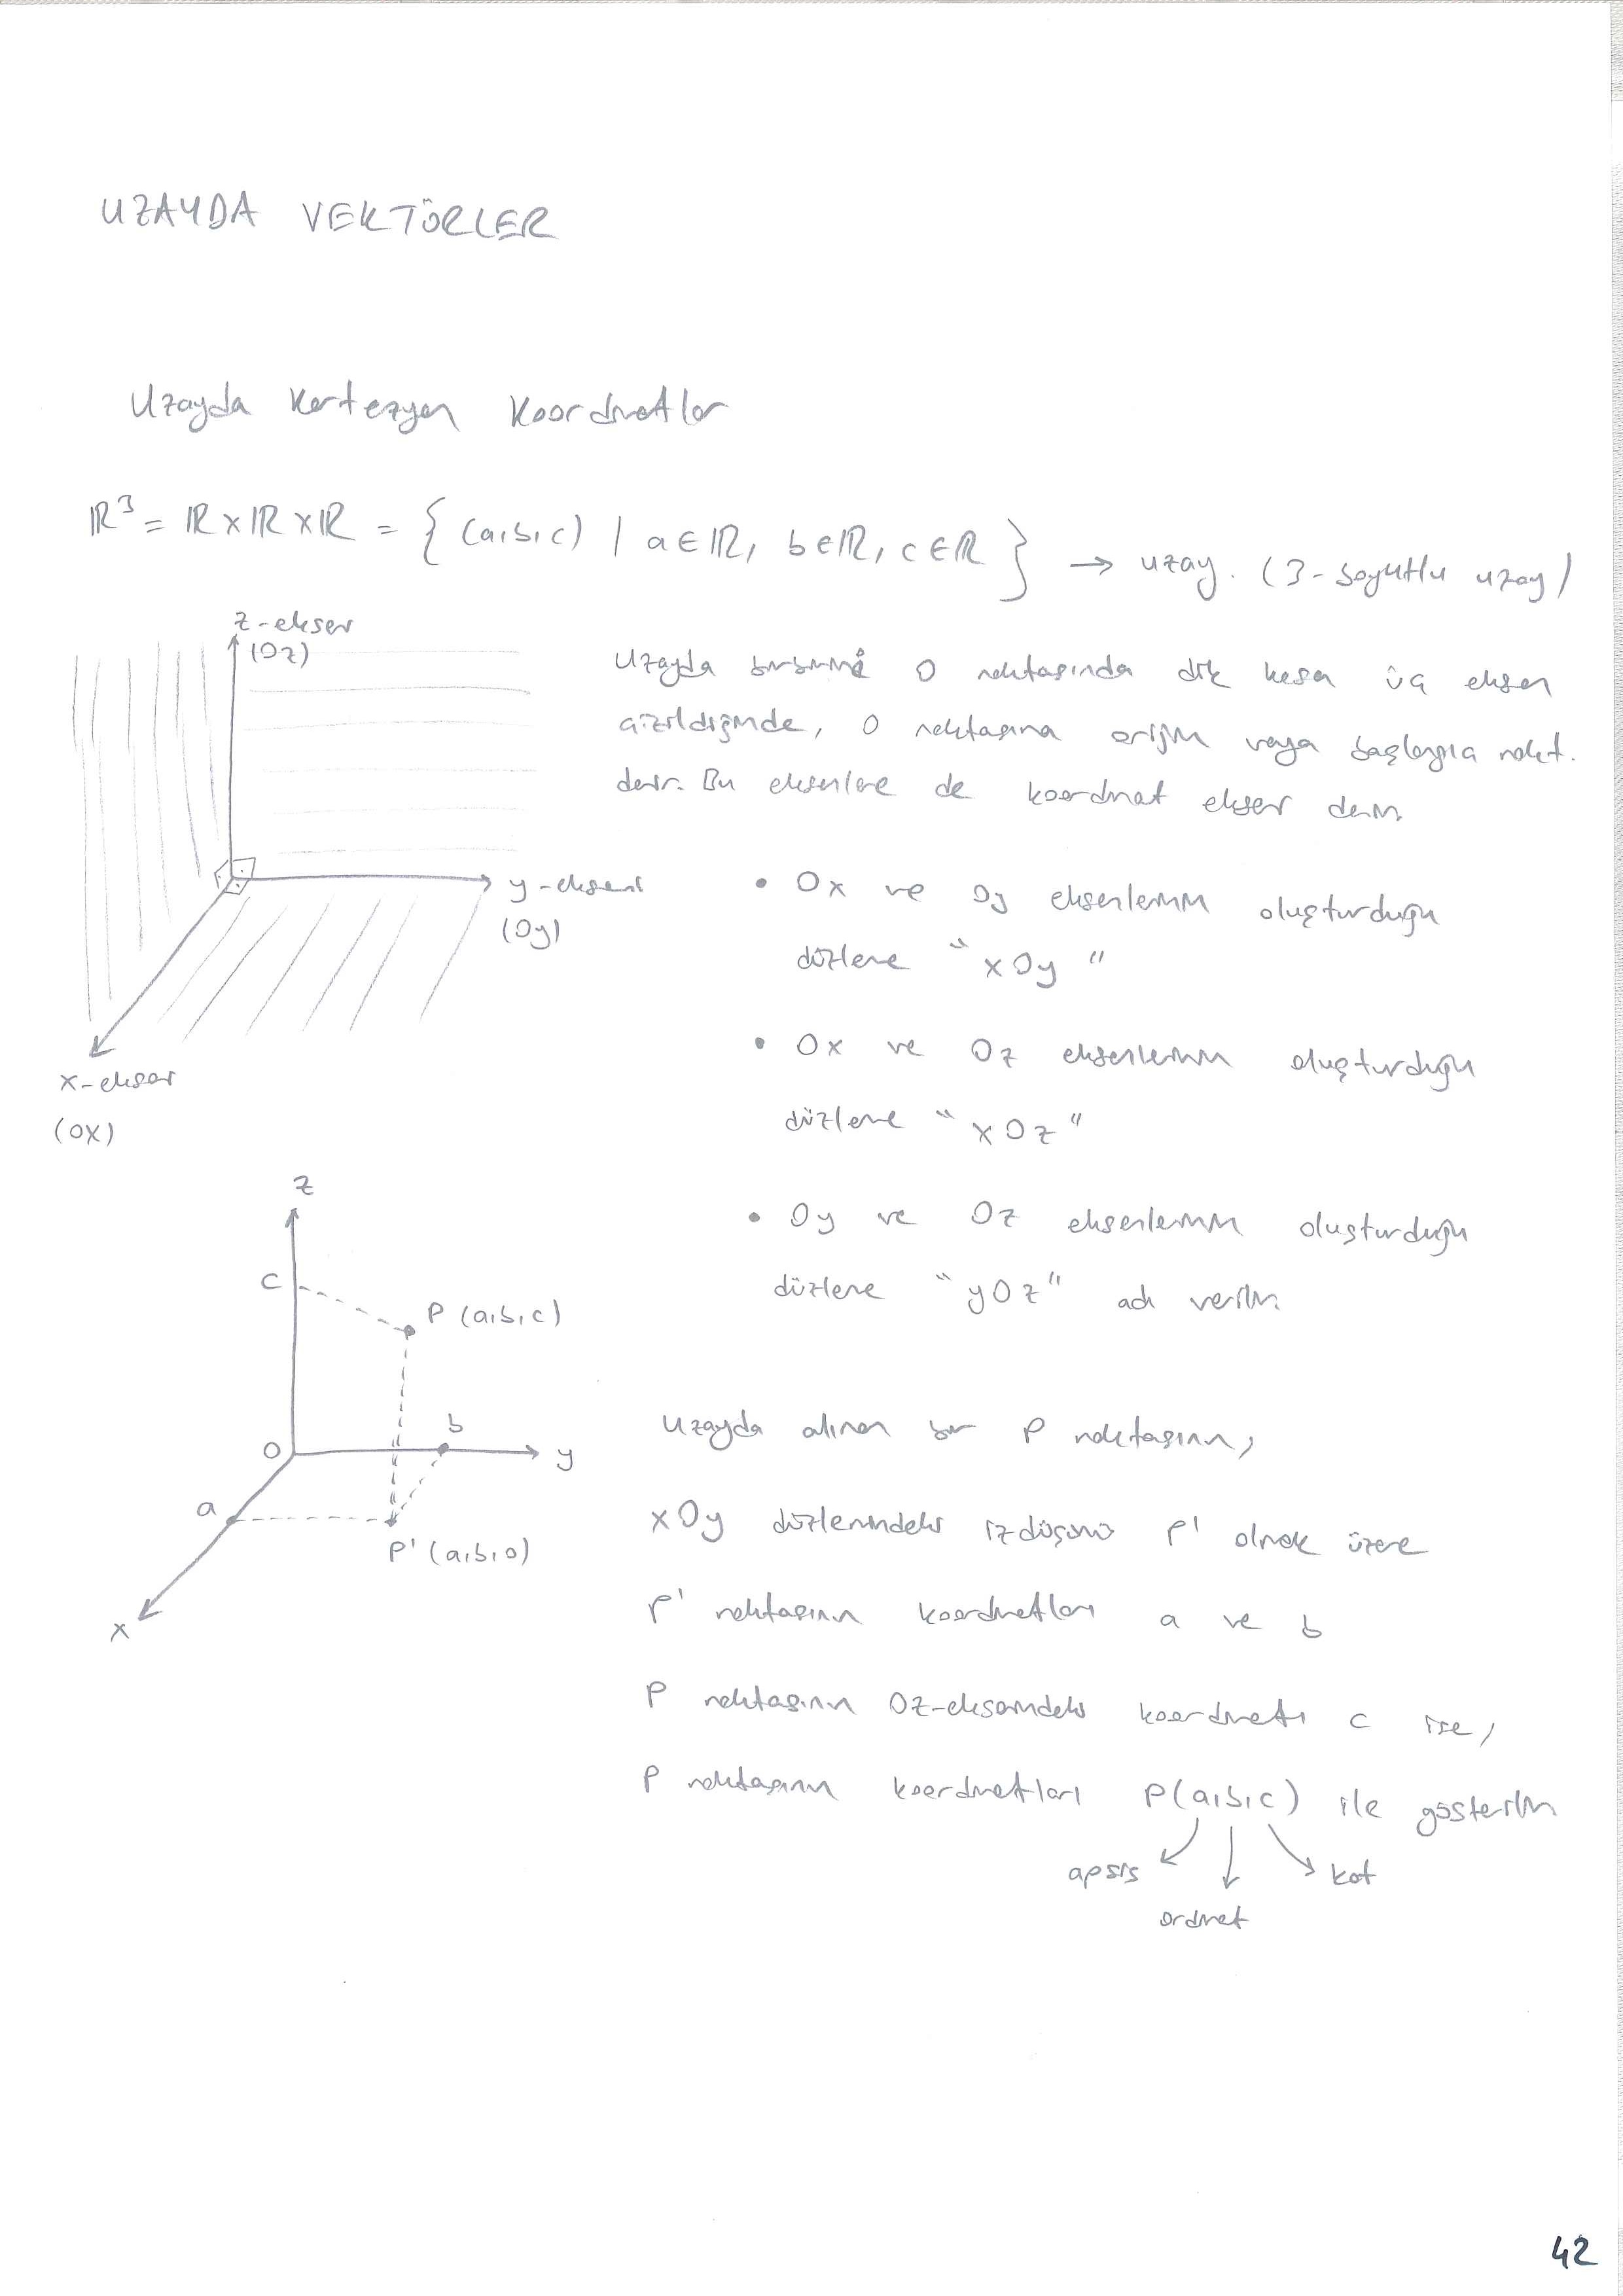 UZAYDA VEKTÖRLER
Uzayda Kartezyen Koordinatlar
ℝ³ = ℝ×ℝ×ℝ = { (a,b,c) | a∈ℝ, b∈ℝ, c∈ℝ } → uzay. (3-boyutlu uzay)
z-ekseni
(Oz)
y-ekseni
(Oy)
x-ekseni
(Ox)
Uzayda birbirini O noktasında dik kesen üç eksen
çizildiğinde, O noktasına orijin veya başlangıç nokt.
denir. Bu eksenlere de koordinat ekseni denir.
• Ox ve Oy eksenlerinin oluşturduğu
düzleme "xOy"
• Ox ve Oz eksenlerinin oluşturduğu
düzleme "xOz"
• Oy ve Oz eksenlerinin oluşturduğu
düzleme "yOz" adı verilir.
z
c
P (a,b,c)
b
O
y
a
P' (a,b,0)
x
Uzayda alınan bir P noktasının,
xOy düzlemindeki izdüşümü P' olmak üzere
P' noktasının koordinatları a ve b
P noktasının Oz-eksenindeki koordinatı c ise,
P noktasının koordinatları P(a,b,c) ile gösterilir.
apsis
kot
ordinat
42